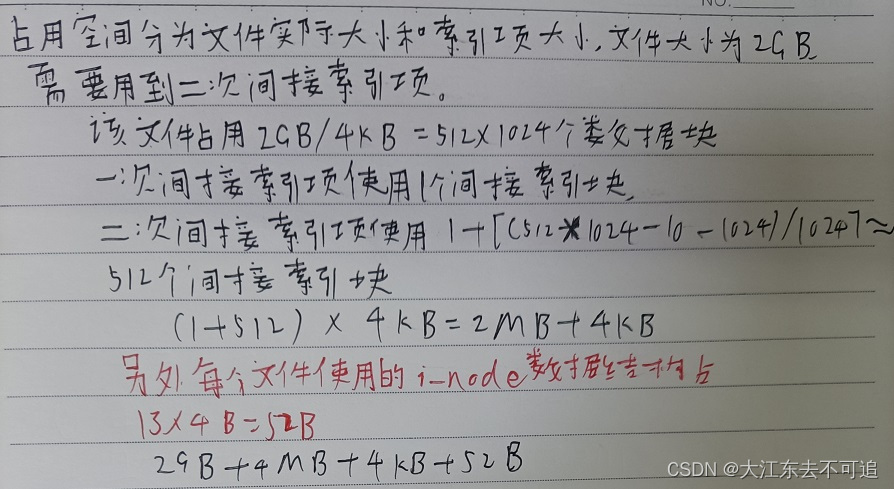 NO.
占用空间分为文件实际大小和索引项大小,文件大小为2GB
需要用到二次间接索引项。
该文件占用2GB/4KB=512×1024个数据块
一次间接索引项使用1个间接索引块,
二次间接索引项使用1+[(512×1024-10-1024)/1024]≈
512个间接索引块
(1+512)×4KB=2MB+4KB
另外每个文件使用的i-node数据结构占
13×4B=52B
2GB+4MB+4KB+52B
CSDN @大江东去不可追